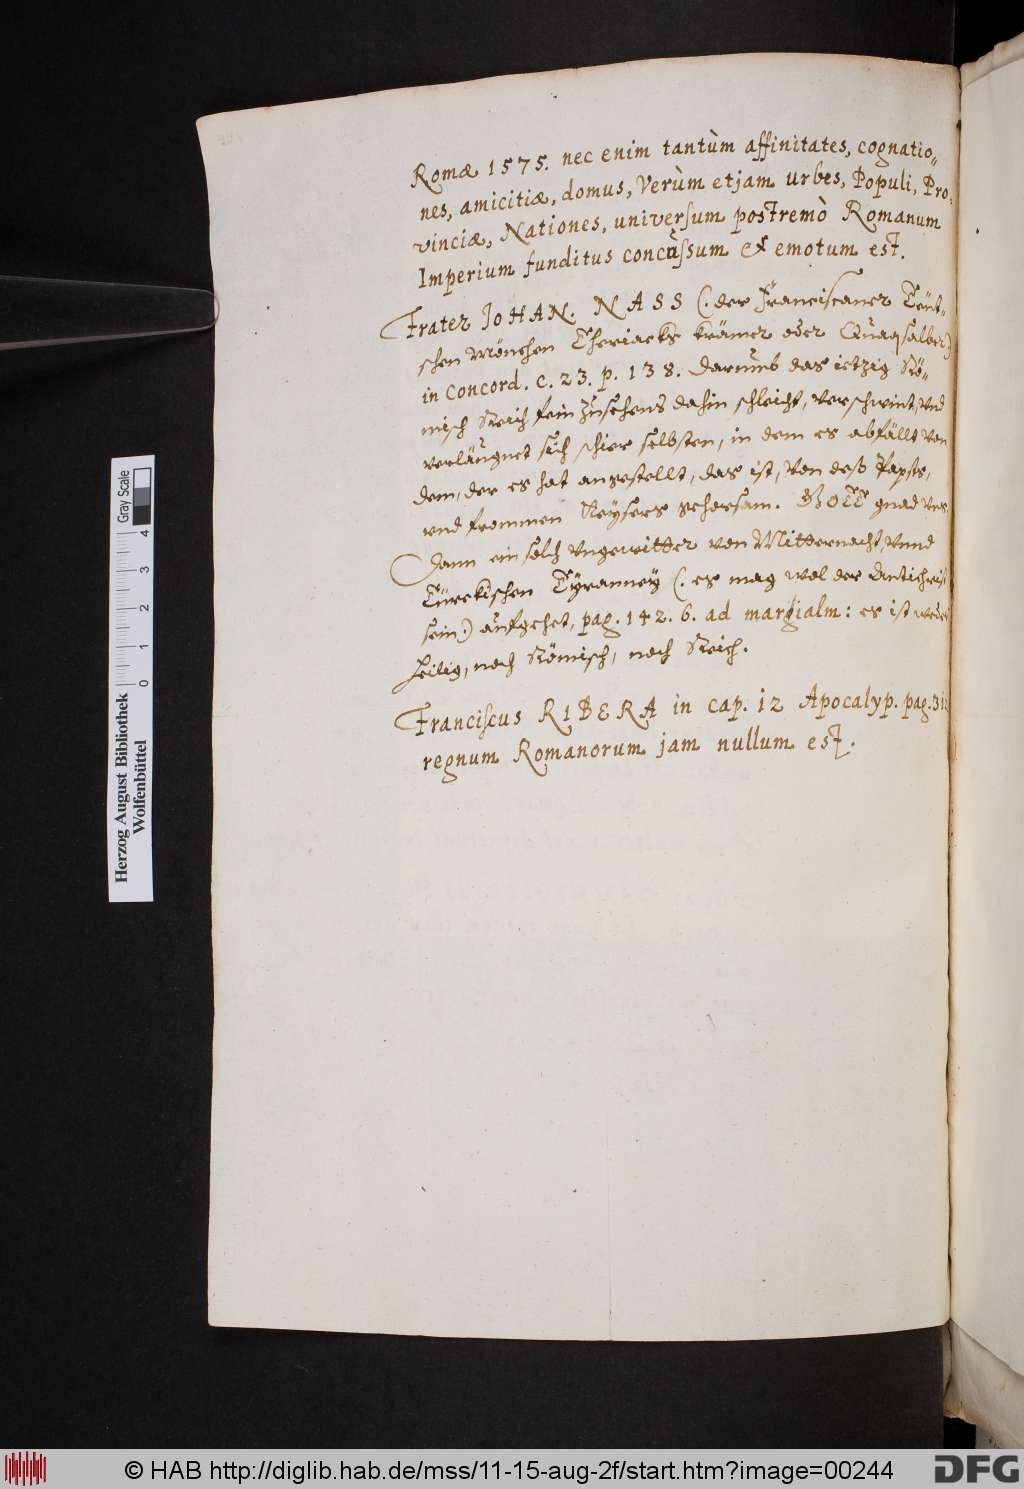 Romæ 1575. nec enim tantùm affinitates, cognatio-
nes, amicitiæ, domus, Verùm etjam urbes, Populi, Pro-
vinciæ, Nationes, universum postremò Romanum
Imperium funditus concussum & emotum est.
Frater JOHAN. NASS (. der Franciscaner Teüt-
schen Mönchen Theriacks krämer oder Quaqsalber)
in Concord. c. 23. p. 138. Darumb das ietzig Rö-
misch Reich fein zusehens dahin schleicht, verschwint, vnd
verläugnet sich schier selbsten, in dem es abfällt von
dem, der es hat angestellt, das ist, von deß Papsts,
vnd frommen Keÿsers gehorsam. GOTT gnad vns.
Dann ein solch vngewitter von Mitternacht, vnnd
Türckischen Tÿranneÿ (. es mag wol der Antichrist
sein.) aufgehet, pag. 142. 6. ad margialm: es ist weder
heilig, noch Römisch, noch Reich.
Franciscus RIBERA in cap. 12 Apocalyp. pag. 312
regnum Romanorum jam nullum est.
Herzog August Bibliothek
Wolfenbüttel
0 1 2 3 4
Gray Scale
© HAB http://diglib.hab.de/mss/11-15-aug-2f/start.htm?image=00244
DFG